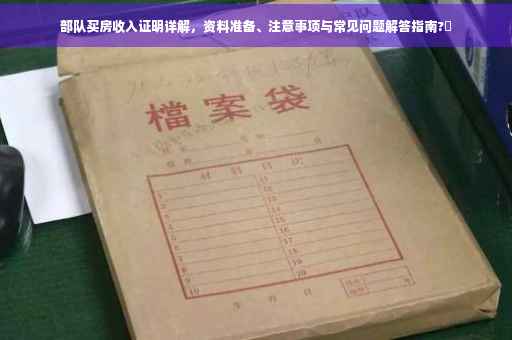 部队买房收入证明详解，资料准备、注意事项与常见问题解答指南?
檔案袋
材料目次
1 11
2 12
3 13
4 14
5 15
6 16
7 17
8 18
9 19
10 20
年 月 日